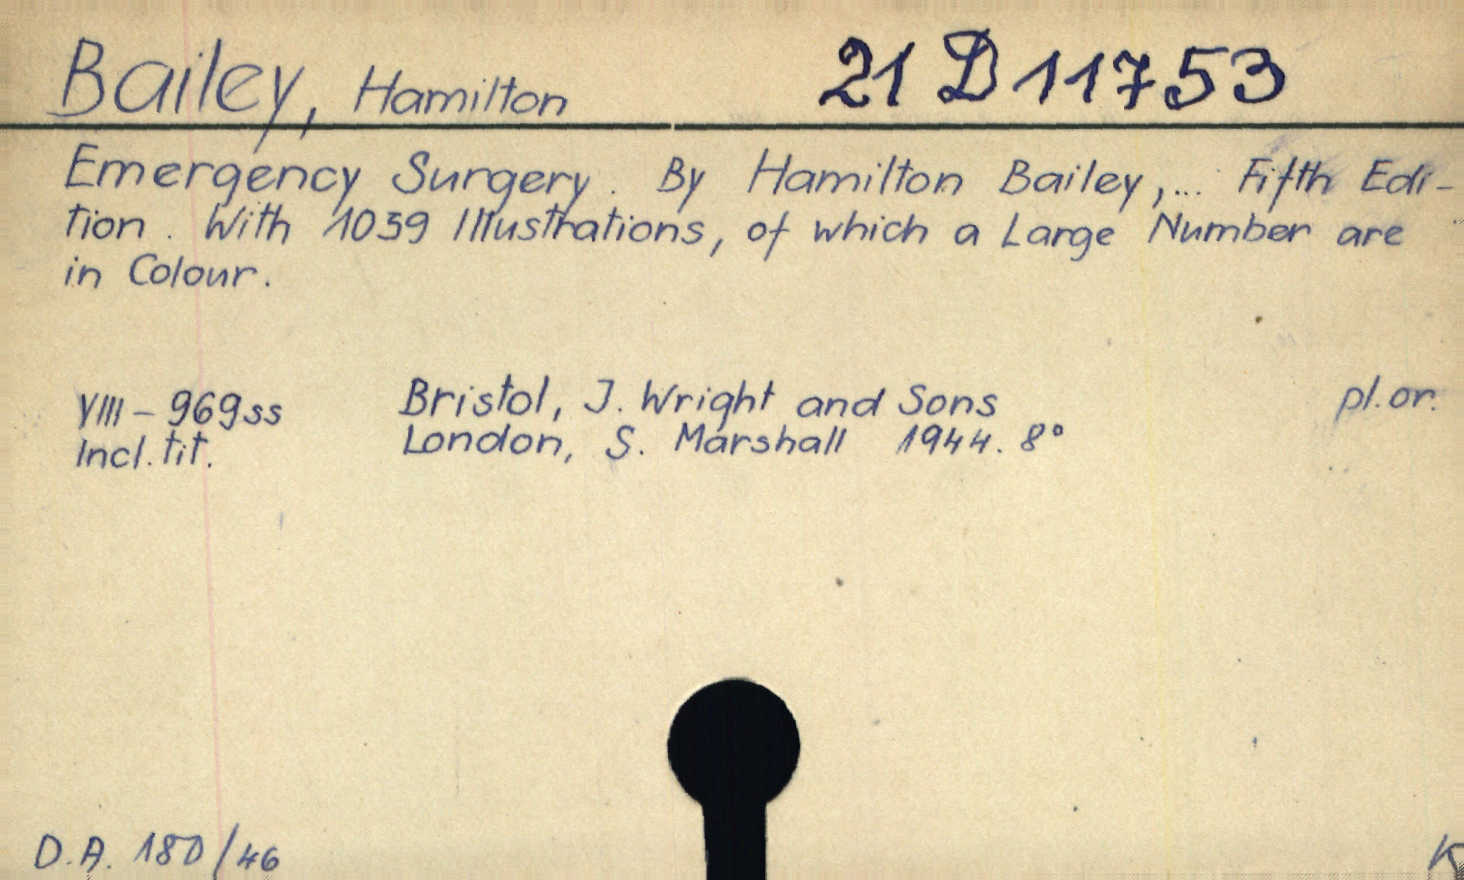 Bailey, Hamilton 21 D 11753
Emergency Surgery. By Hamilton Bailey,... Fifth Edi-
tion. With 1039 Illustrations, of which a Large Number are
in Colour.
VIII - 969ss Bristol, J. Wright and Sons pl.or.
Incl. tit. London, S. Marshall 1944. 8°
D.A. 180/46 K